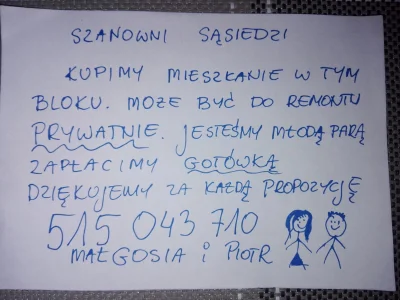 SZANOWNI SĄSIEDZI
KUPIMY MIESZKANIE W TYM
BLOKU. MOŻE BYĆ DO REMONTU
PRYWATNIE. JESTEŚMY MŁODĄ PARĄ
ZAPŁACIMY GOTÓWKĄ
DZIĘKUJEMY ZA KAŻDĄ PROPOZYCJĘ
515 043 710
MAŁGOSIA i PIOTR